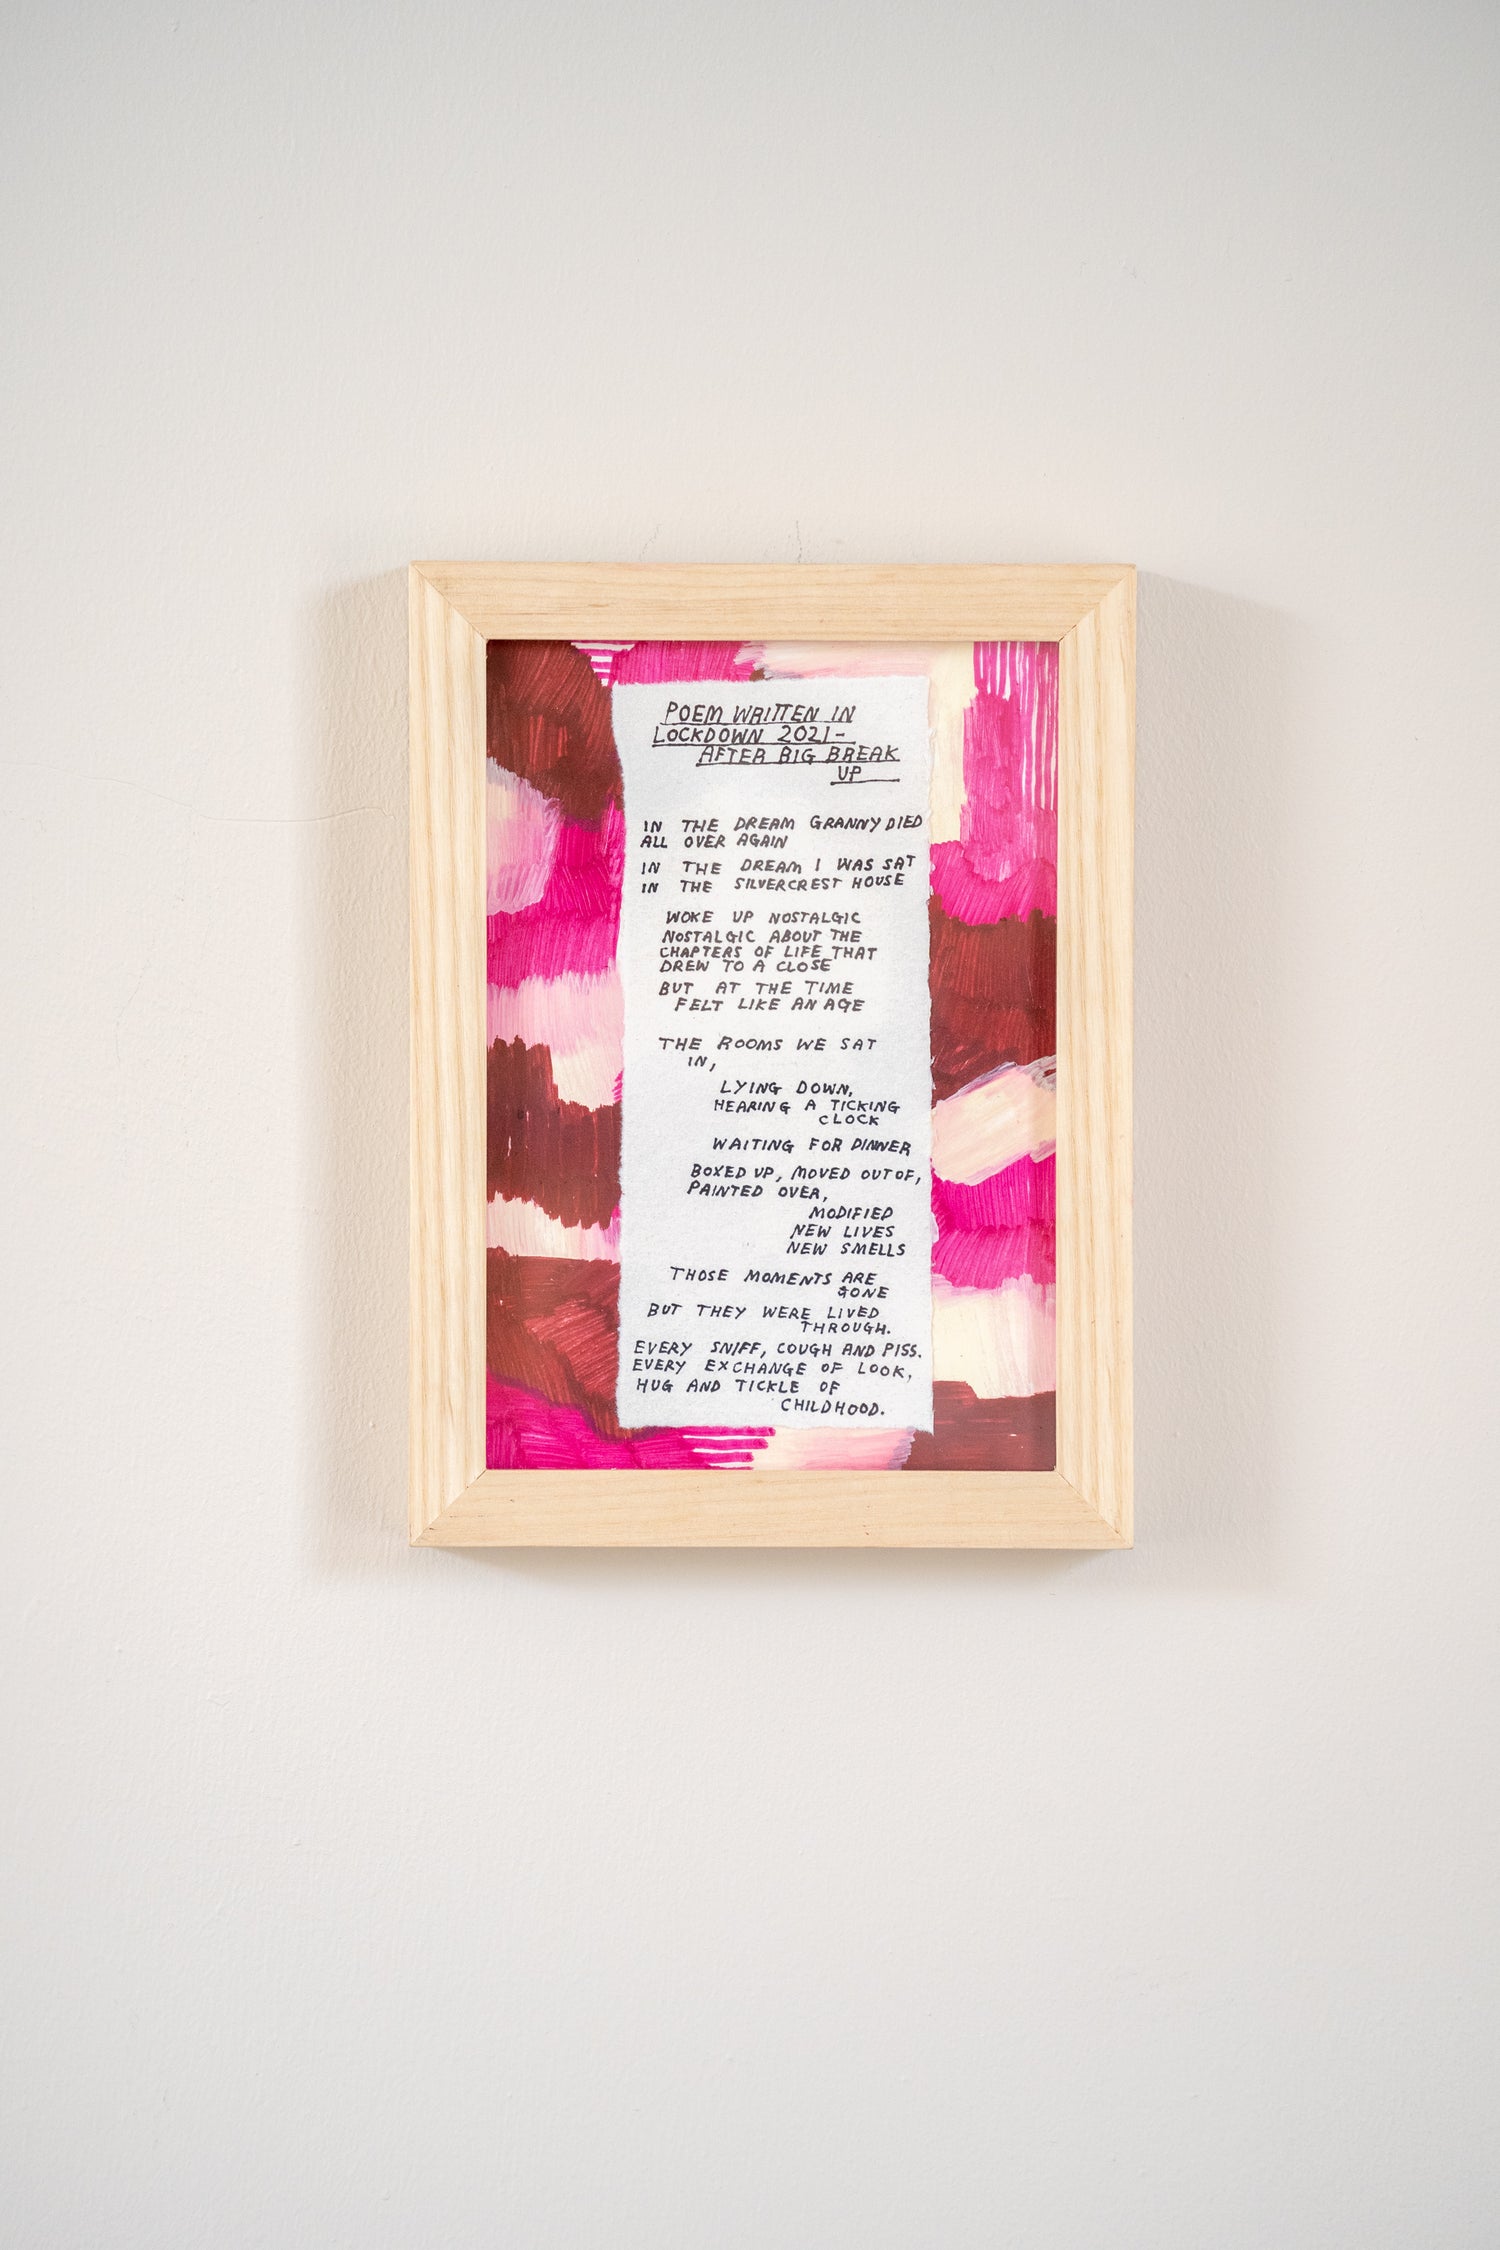 POEM WRITTEN IN
LOCKDOWN 2021-
AFTER BIG BREAK
UP
IN THE DREAM GRANNY DIED
ALL OVER AGAIN
IN THE DREAM I WAS SAT
IN THE SILVERCREST HOUSE
WOKE UP NOSTALGIC
NOSTALGIC ABOUT THE
CHAPTERS OF LIFE THAT
DREW TO A CLOSE
BUT AT THE TIME
FELT LIKE AN AGE
THE ROOMS WE SAT
IN,
LYING DOWN,
HEARING A TICKING
CLOCK
WAITING FOR DINNER
BOXED UP, MOVED OUT OF,
PAINTED OVER,
MODIFIED
NEW LIVES
NEW SMELLS
THOSE MOMENTS ARE
GONE
BUT THEY WERE LIVED
THROUGH.
EVERY SNIFF, COUGH AND PISS.
EVERY EXCHANGE OF LOOK,
HUG AND TICKLE OF
CHILDHOOD.